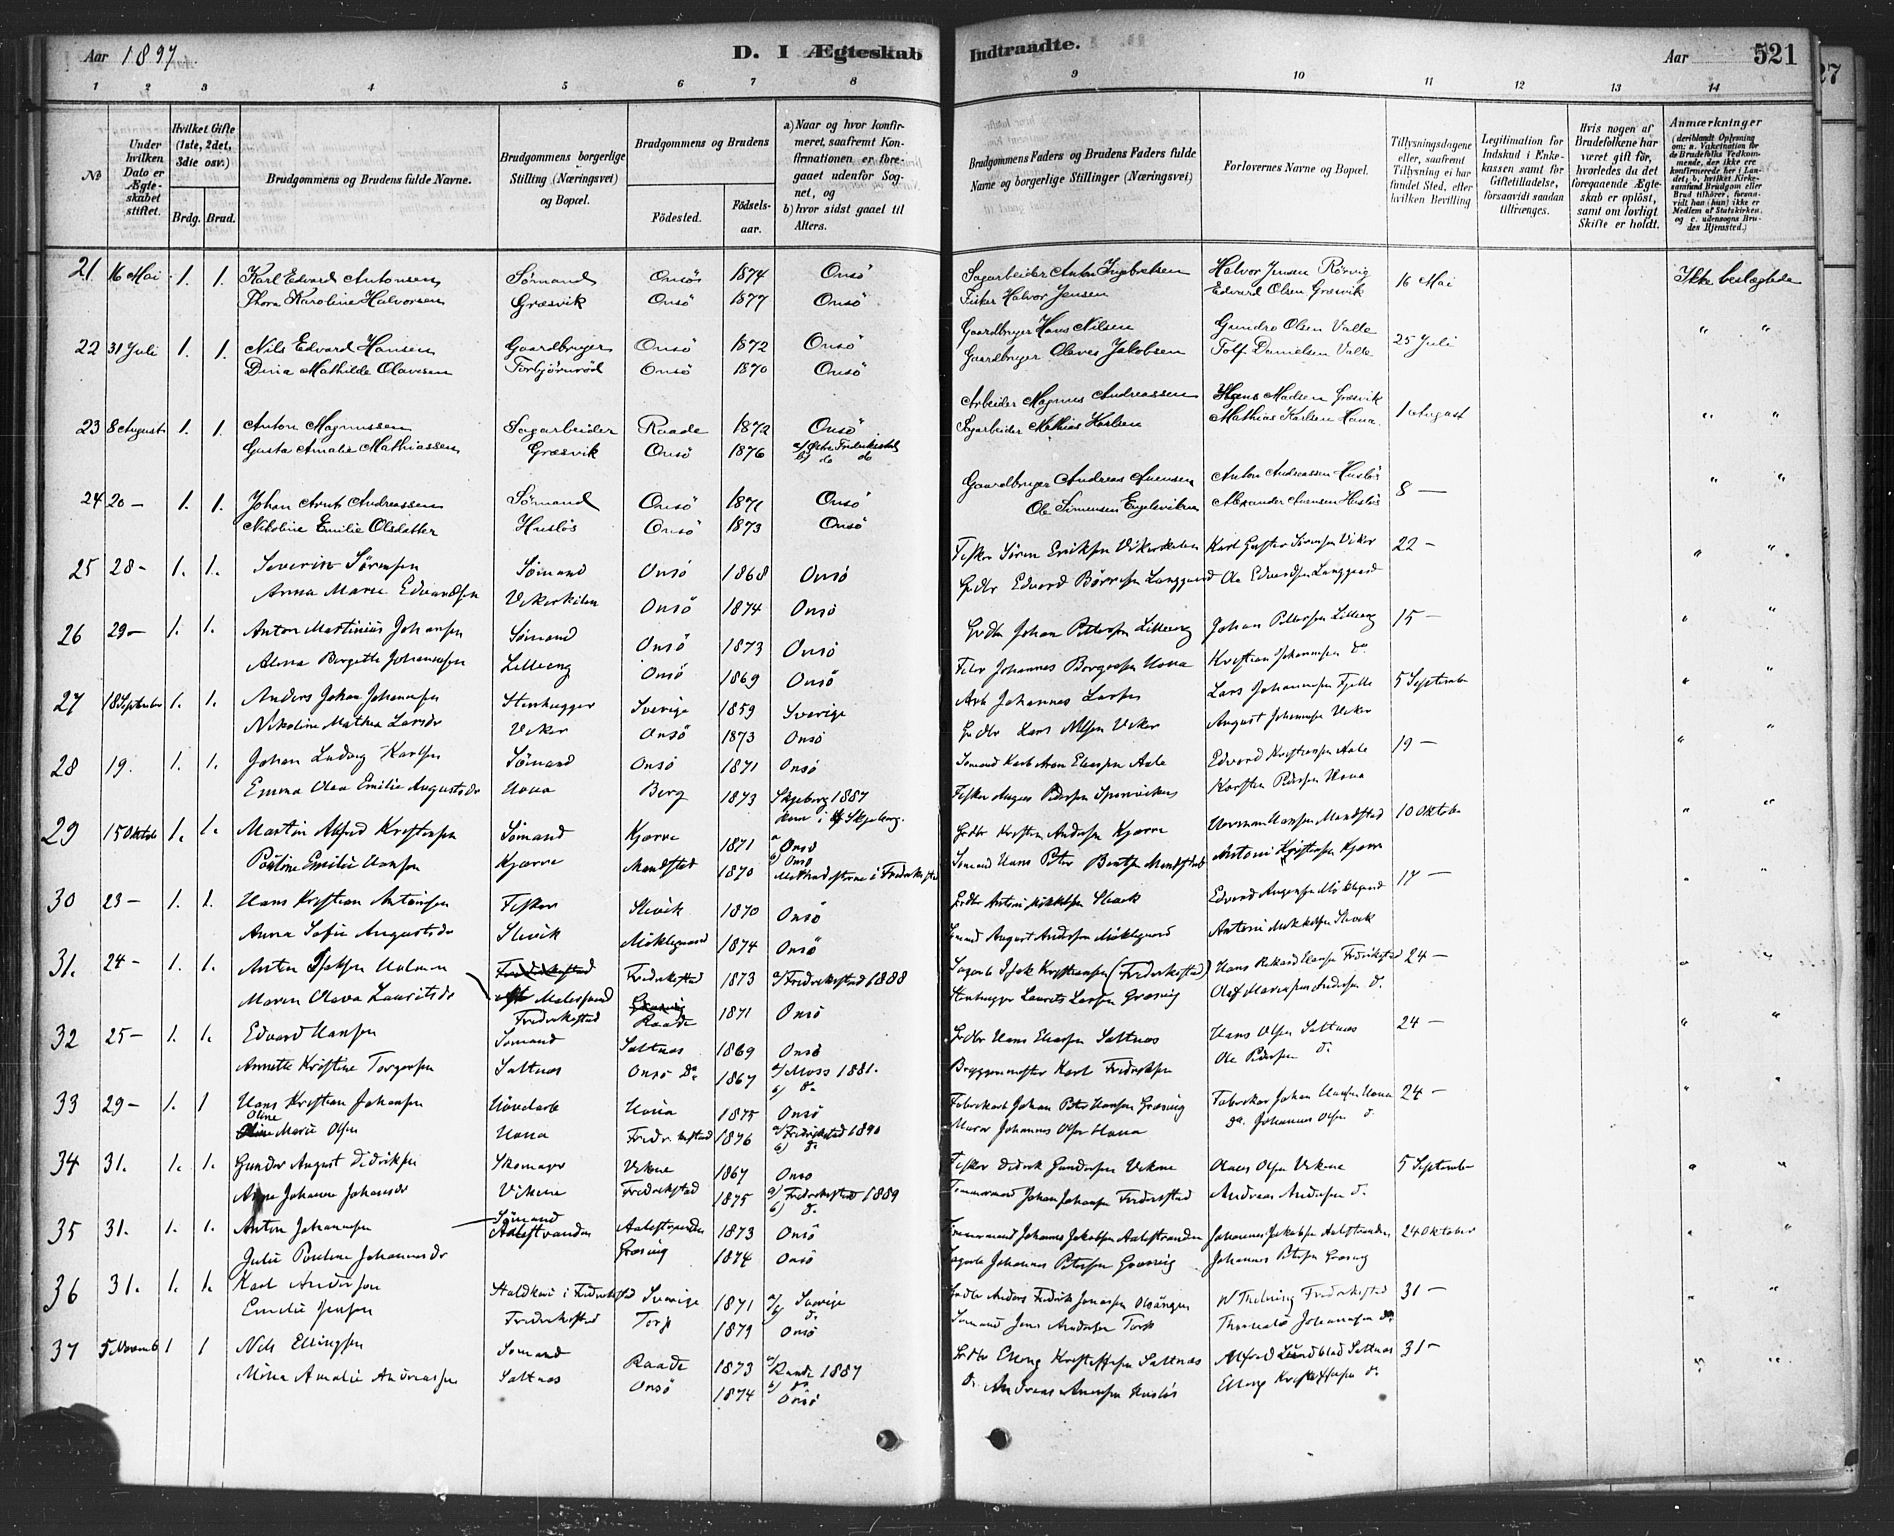 Aar 1897. D. I Ægteskab Indtraadte. Aar 521
27
1 2 3 4 5 6 7 8 9 10 11 12 13 14
No
Under hvilken Dato er Ægteskabet stiftet.
Hvilket Gifte (1ste, 2det, 3die osv.)
Brdg. Brud.
Brudgommens og Brudens fulde Navne.
Brudgommens borgerlige Stilling (Næringsvei) og Bopæl.
Brudgommens og Brudens
Födested. Födselsaar.
a) Naar og hvor konfirmeret, saafremt Konfirmationen er foregaaet udenfor Sognet, og
b) hvor sidst gaaet til Alters.
Brudgommens Faders og Brudens Faders fulde Navne og borgerlige Stillinger (Næringsvei)
Forlovernes Navne og Bopæl.
Tillysningsdagene eller, saafremt Tillysning ei har fundet Sted, efter hvilken Bevilling
Legitimation for Indskud i Enkekassen samt for Giftetilladelse, forsaavidt saadan tiltrænges.
Hvis nogen af Brudefolkene har været gift før, hvorledes da det foregaaende Ægteskab er oplöst, samt om lovligt Skifte er holdt.
Anmærkninger
21 16 Mai 1. 1. Karl Edvard Antonsen Sömand Onsö 1874 Onsö Sagarbeider Anton Ingebretsen Halvor Jensen Rörvig 16 Mai Ikke beslægtede
Thora Karoline Halvorsen Græsvik Onsö 1877 Onsö Fisker Halvor Jensen Edvard Olsen Græsvik
22 31 Juli 1. 1. Nils Edvard Hansen Gaardbruger Onsö 1872 Onsö Gaardbruger Hans Nilsen Gundro Olsen Valle 25 Juli " "
Dina Mathilde Olavesen Torbjörnröd Onsö 1870 Onsö Gaardbruger Olaves Jakobsen Tolf Danielsen Valle
23 8 August 1. 1. Anton Magnussen Sagarbeider Raade 1872 Onsö Arbeider Magnus Andreassen Hans Madsen Græsvik 1 August " "
Gusta Amalie Mathiassen Græsvik Onsö 1876 a) Östre Fredriksstad b) do do Sagarbeider Mathias Karlsen Mathias Karlsen Hana
24 20 – 1. 1. Johan Arnt Andreassen Sömand Onsö 1871 Onsö Gaardbruger Andreas Svensen Anton Andreassen Huslös 8 — " "
Nikoline Emilie Olsdatter Huslös Onsö 1873 Onsö Ole Simensen Engelsviken Alexander Svensen Huslös
25 28 – 1. 1. Severin Sörensen Sömand Onsö 1868 Onsö Fisker Sören Eriksen Vikerkilen Karl Gustav Sörensen Viker 22 – " "
Anna Marie Edvardsen Vikerkilen Onsö 1874 Onsö Grdbr Edvard Börresen Langgaard Ole Edvardsen Langgaard
26 29 – 1. 1. Anton Martinius Johansen Sömand Onsö 1873 Onsö Grdbr Johan Pettersen Lilleeng Johan Pettersen Lilleeng 15 – " "
Alma Bergitte Johannesen Lilleeng Onsö 1869 Onsö Johannes Borgersen Hona Kristian Johannesen do
27 18 September 1. 1. Anders Johan Johannesen Stenhugger Sverige 1859 Sverige Arb Johannes Larsen Lars Johannesen Fjelle 5 September " "
Nikoline Mathea Larsdr Viker Onsö 1873 Onsö Grdbr Lars Nilsen Viker August Johannesen Viker
28 19. 1. 1. Johan Ludvig Karlsen Sömand Onsö 1871 Onsö Sömand Karl Aron Eliassen Aale Edvard Kristiansen Aale 19 – " "
Emma Olea Emilie Augustsdr Hona Berg 1873 Skjeberg 1887 Fisker August Pedersen Sponviken Karsten Pedersen Hona
29 15 Oktober 1. 1. Martin Alfred Kristensen Sömand Kjærre 1871 Onsö Grdbr Kristen Andersen Kjærre Herman Hansen Mandstad 10 Oktober " "
Pauline Emilie Hansen Kjærre Mandstad 1870 a) Onsö Methodisterne i Fredrikstad Sömand Hans Peter Berntsen Mandstad Antoni Kristensen Kjærre
30 23 – 1. 1. Hans Kristian Antonisen Fisker Slevik 1870 Onsö Grdbr Antoni Mikkelsen Slevik Edvard Augustsen Möklegaard 17 – " "
Anna Sofie Augustsdr Slevik Möklegaard 1874 Onsö Sömand August Andersen Möklegaard Antoni Mikkelsen Slevik
31. 24 – 1. 1. Anton Isaksen Holmen Fredrikstad Fredrikstad 1873 a) Fredrikstad 1888 Sagarb Isak Kristiansen (Fredrikstad) Hans Rikard Hansen Fredrikstad 24 – " "
Maren Olava Lauritsdr Malersvend Fredrikstad Græsvig Raade 1871 Onsö Stenhugger Laurits Larsen Græsvig Olaf Mariussen Andersen do
32 25 – 1. 1. Edvard Hansen Sömand Saltnæs 1869 Onsö Grdbr Hans Eliassen Saltnæs Hans Olsen Saltnæs 24 – " "
Annette Kristine Torgersen Saltnæs Onsö do 1867 a) Moss 1881. b) do Bryggemester Karl Fredriksen Ole Pedersen do
33 29 – 1. 1 Hans Kristian Johansen Hona 1875 Onsö Fabrikarb Johan Peter Hansen Græsvig Fabrikar Johan Hansen Hona 24 – " "
Oline Marie Olsen Hona Fredrikstad 1876 a) Fredrikstad 1890 b) do Murer Johannes Olsen Hona do. Johannes Olsen do
34 31. 1. 1. Gunder August Didriksen Skomager Vikene 1867 Onsö Fisker Didrik Gundersen Vikene Olaves Olsen Vikene 5 September " "
Anne Johanne Johansdr Vikene Fredrikstad 1875 a) Fredrikstad 1889 b) do Tömmermand Johan Johansen Fredrikstad Andreas Andersen do
35 31. 1. 1. Anton Johannesen Sömand Aalestranden Aalestranden 1873 Onsö Tömmermand Johannes Jakobsen Aalestranden Johannes Jakobsen Aalestranden 24 Oktober " "
Julie Pauline Johannesdr Græsvig 1874 Onsö Sagarb Johannes Petersen Græsvig Johannes Petersen Græsvig
36 31. 1. 1. Karl Andersson Staldkarl i Fredrikstad Sverige 1871 a) b) Sverige do Grdbr Anders Fredrik Jonassen W Thelning Fredrikstad 31 – " "
Emilie Jensen Fredrikstad Torp 1879 Onsö Sömand Jens Andersen Torp Johannesen do
37 5 Novemb 1 1 Nils Ellingsen Sömand Raade 1873 a) Raade 1887 b) do Grdbr Elling Kristoffersen Saltnæs Alfred Lundblad Saltnæs 31 – " "
Mina Amalie Andreassen Saltnæs Onsö 1874 Onsö do Andreas Arnesen Huslös Elling Kristoffersen do